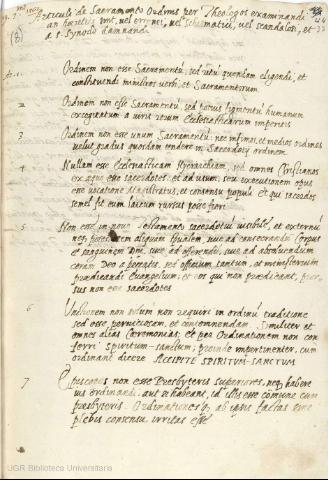 Articuli de Sacramento Ordinis per Theologos examinandi
an hæretici sint, vel erronei, vel schismatici, vel scandalosi, et
a S. Synodo damnandi
(8)
Ordinem non esse Sacramentũ, sed ritũ quendam eligendi, et
constituendi ministros verbi, et Sacramentorum
2 Ordinem non esse Sacramentũ, sed potius figmentũ humanum
excogitatum a viris rerum Ecclesiasticarum imperitis
3 Ordinem non esse unum Sacramentũ, nec infimos, et medios ordines
velut gradus quosdam tendere in Sacerdotij ordinem
4 Nullam esse Ecclesiasticam Hyerarchiam, sed omnes Christianos
ex æquo esse sacerdotes, et ad usum, seu executionem opus
esse vocatione Magistratus, et consensu populi. Et qui sacerdos
semel fit eum laicum rursus posse fieri
5 Non esse in novo Testamento sacerdotiũ visibile, et externũ
neq potestatem aliquam spũalem, sive ad consecrandũ Corpus
et sanguinem Dñi, sive ad offerendũ, sive ad absolvendum
coram Deo a peccatis, sed officium tantum, et ministerium
prædicandi Evangelium, et eos qui non prædicant, pror
sus non esse sacerdotes
6 Unctionem non solum non requiri in ordinũ traditione
sed esse perniciosam, et contemnendam. Similiter et
omnes alias Ceremonias, et per Ordinationem non con
ferri Spiritum-Sanctum, proinde impertinenter, cum
ordinant dicere ACCIPITE SPIRITUM-SANCTUM
7 Episcopos non esse Presbyteris superiores, neq habere
ius ordinandi, aut si habeant, id illis esse commune cum
presbyteris. Ordinationesq ab ipsis factas sine
plebis consensu irritas esse
UGR Biblioteca Universitaria